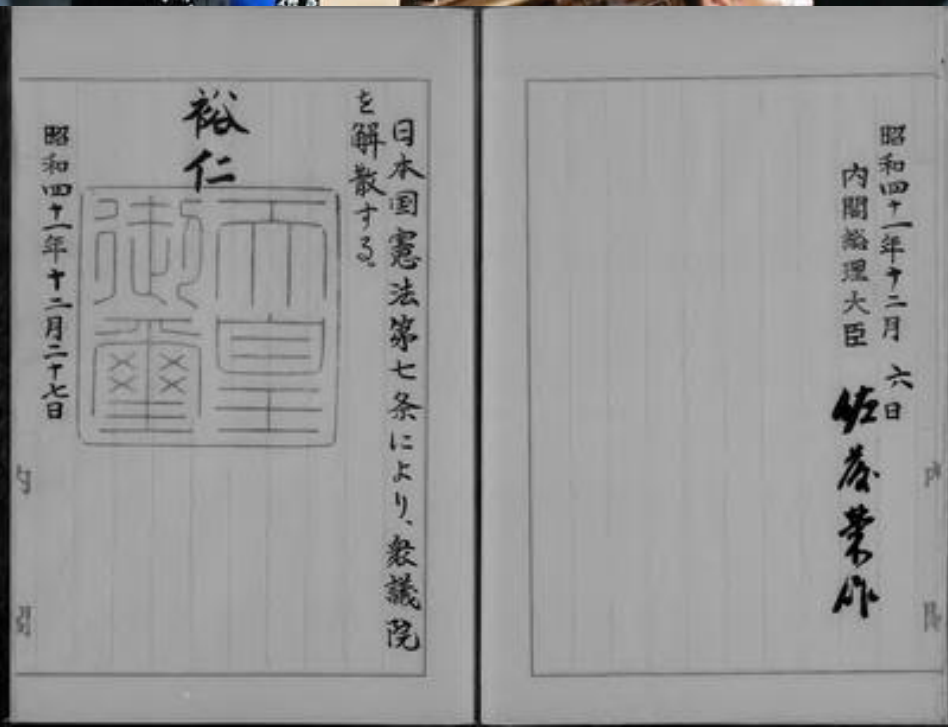 昭和四十一年十二月 六日
内閣総理大臣 佐藤栄作
日本国憲法第七条により、衆議院
を解散する。
裕仁
天皇
御璽
昭和四十一年十二月二十七日